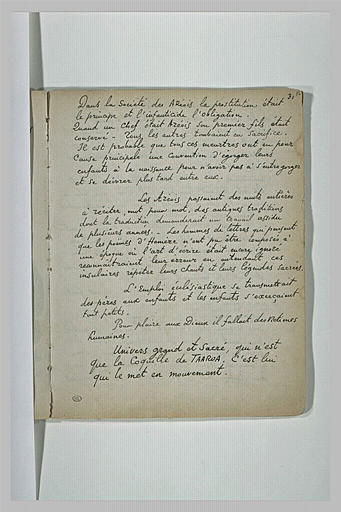 31
Dans la Société des Aréois la prostitution était
le principe et l'infanticide l'obligation.
Quand un chef était Aréois son premier fils était
conservé - Tous les autres tombaient en sacrifice.
Il est probable que tous ces meurtres ont eu pour
cause principale une convention d'égorger leurs
enfants à la naissance pour n'avoir pas à s'entregorger
et se dévorer plus tard entre eux.
Les Aréois passaient des nuits entières
à réciter, mot pour mot, des antiques traditions
dont la traduction demanderait un travail assidu
de plusieurs années. - Les hommes de lettres qui pensent
que les poèmes d'Homère n'ont pu être composés à
une époque où l'art d'écrire était encore ignoré
reconnaîtraient leur erreur en entendant ces
insulaires répéter leurs chants et leurs légendes sacrées.
L'Emploi écclésiastique se transmettait
des pères aux enfants et les enfants s'exerçaient
tout petits.
Pour plaire aux Dieux il fallait des victimes
humaines.
Univers grand et Sacré, qui n'est
que la Coquille de TAAROA, C'est lui
qui le met en mouvement.